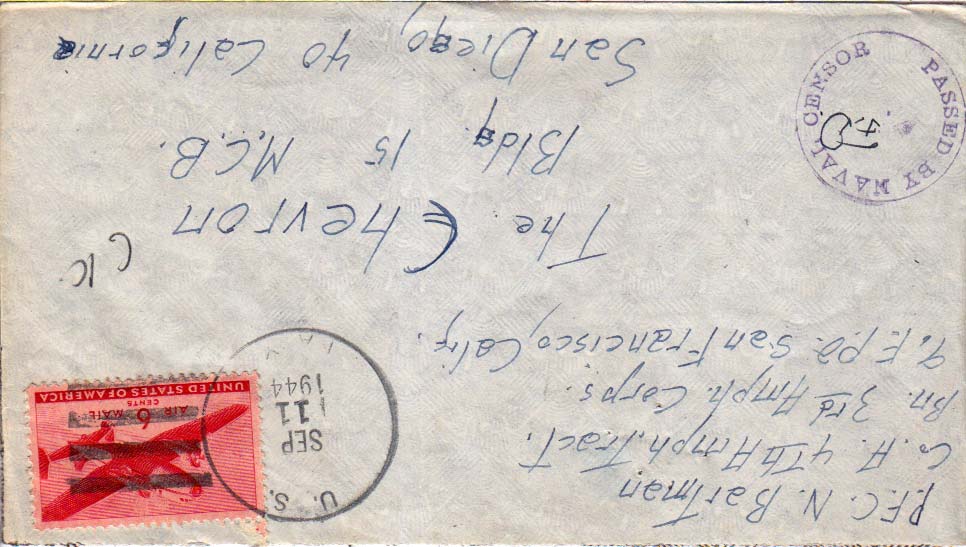 P.F.C. N. Bartman
Co. A. 4TH Amph. Tract.
Bn. 3rd Amph. Corps.
F.P.O. San Francisco, Calif.
U. S.
SEP
11
1944
AIR 6 MAIL
CENTS
UNITED STATES OF AMERICA
CK
The Chevron
Bldg. 15 M.C.B.
San Diego, 40 California
PASSED BY NAVAL CENSOR